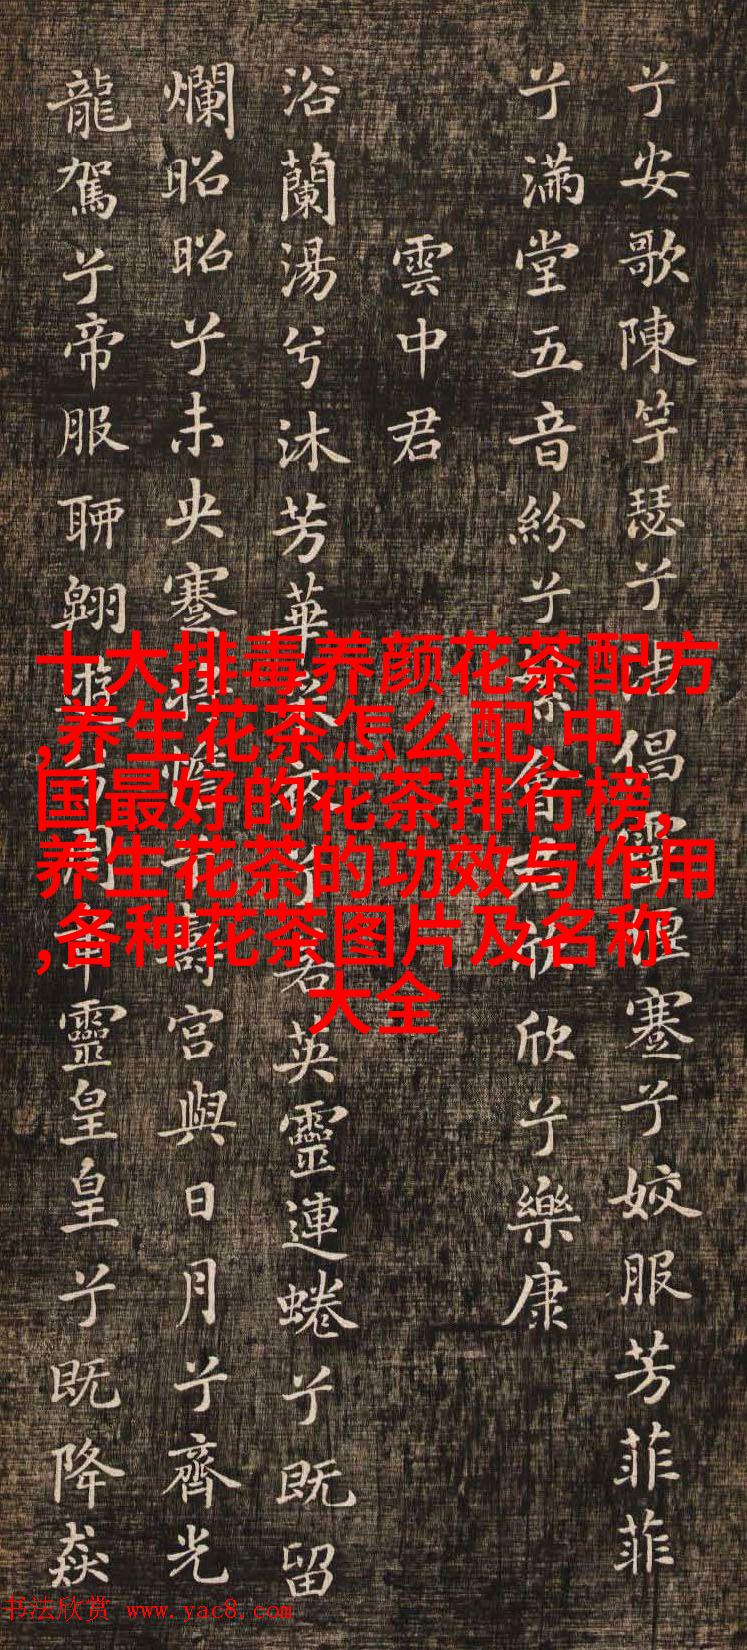 兮安歌陳竽瑟兮浩倡靈偃蹇兮姣服芳菲菲
兮滿堂五音紛兮繁會君欣欣兮樂康
雲中君
浴蘭湯兮沐芳華采衣兮若英靈連蜷兮既留
爛昭昭兮未央蹇將憺兮壽宮與日月兮齊光
龍駕兮帝服聊翱遊兮周章靈皇皇兮既降猋
十大排毒养颜花茶配方
,养生花茶怎么配,中
国最好的花茶排行榜,
养生花茶的功效与作用
,各种花茶图片及名称
大全
书法欣赏 www.yac8.com